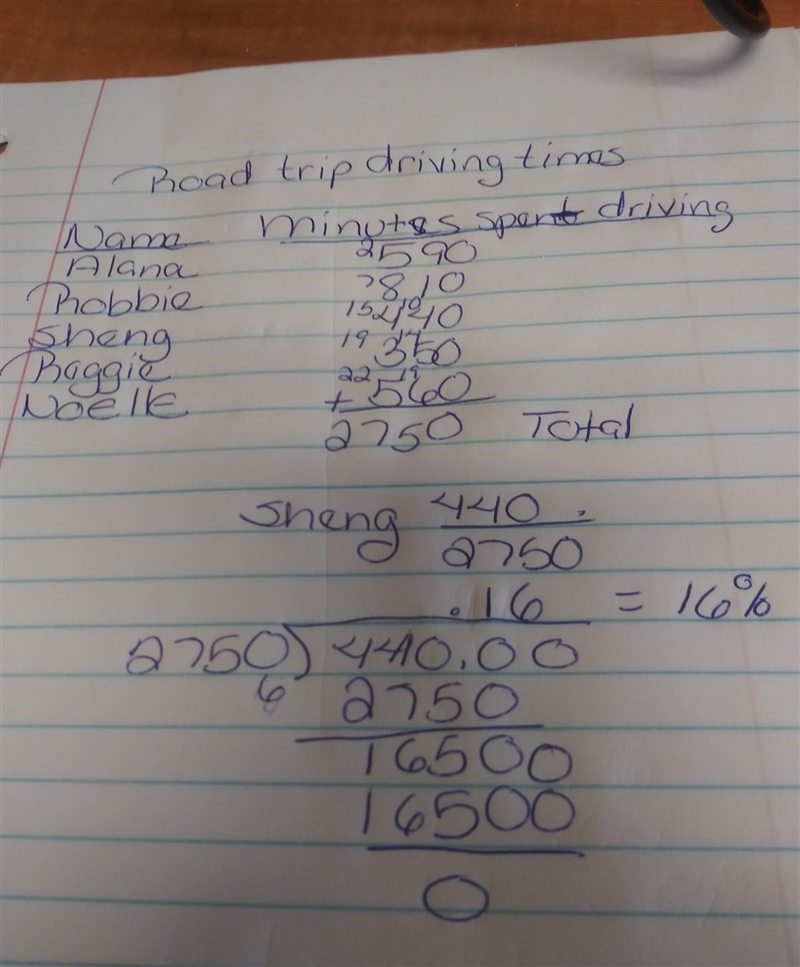 Road trip driving times
Name Minutes spent driving
Alana 590
Robbie 810
Sheng 440
Reggie 350
Noelle + 560
2750 Total
Sheng 440
2750
.16 = 16%
2750)440.00
6 2750
16500
16500
0